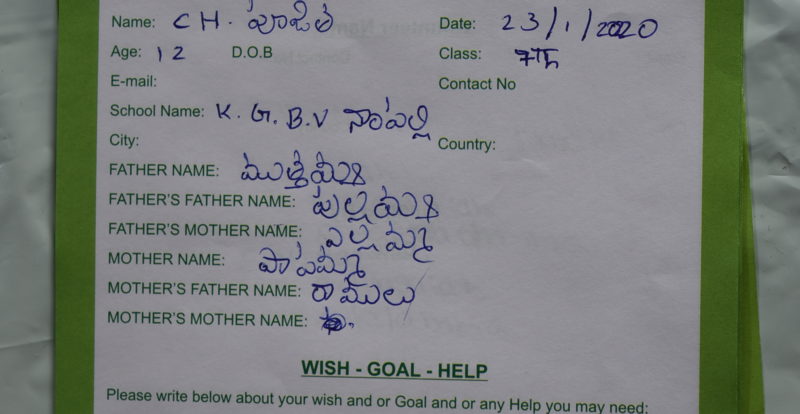 Name: CH. పూజిత Date: 23/1/2020
Age: 12 D.O.B Class: 7th
E-mail: Contact No
School Name: K.G.B.V నాంపల్లి
City: Country:
FATHER NAME: ముత్తయ్య
FATHER'S FATHER NAME: పుల్లయ్య
FATHER'S MOTHER NAME: ఎల్లమ్మ
MOTHER NAME: పాపమ్మ
MOTHER'S FATHER NAME: రాములు
MOTHER'S MOTHER NAME:
WISH - GOAL - HELP
Please write below about your wish and or Goal and or any Help you may need: